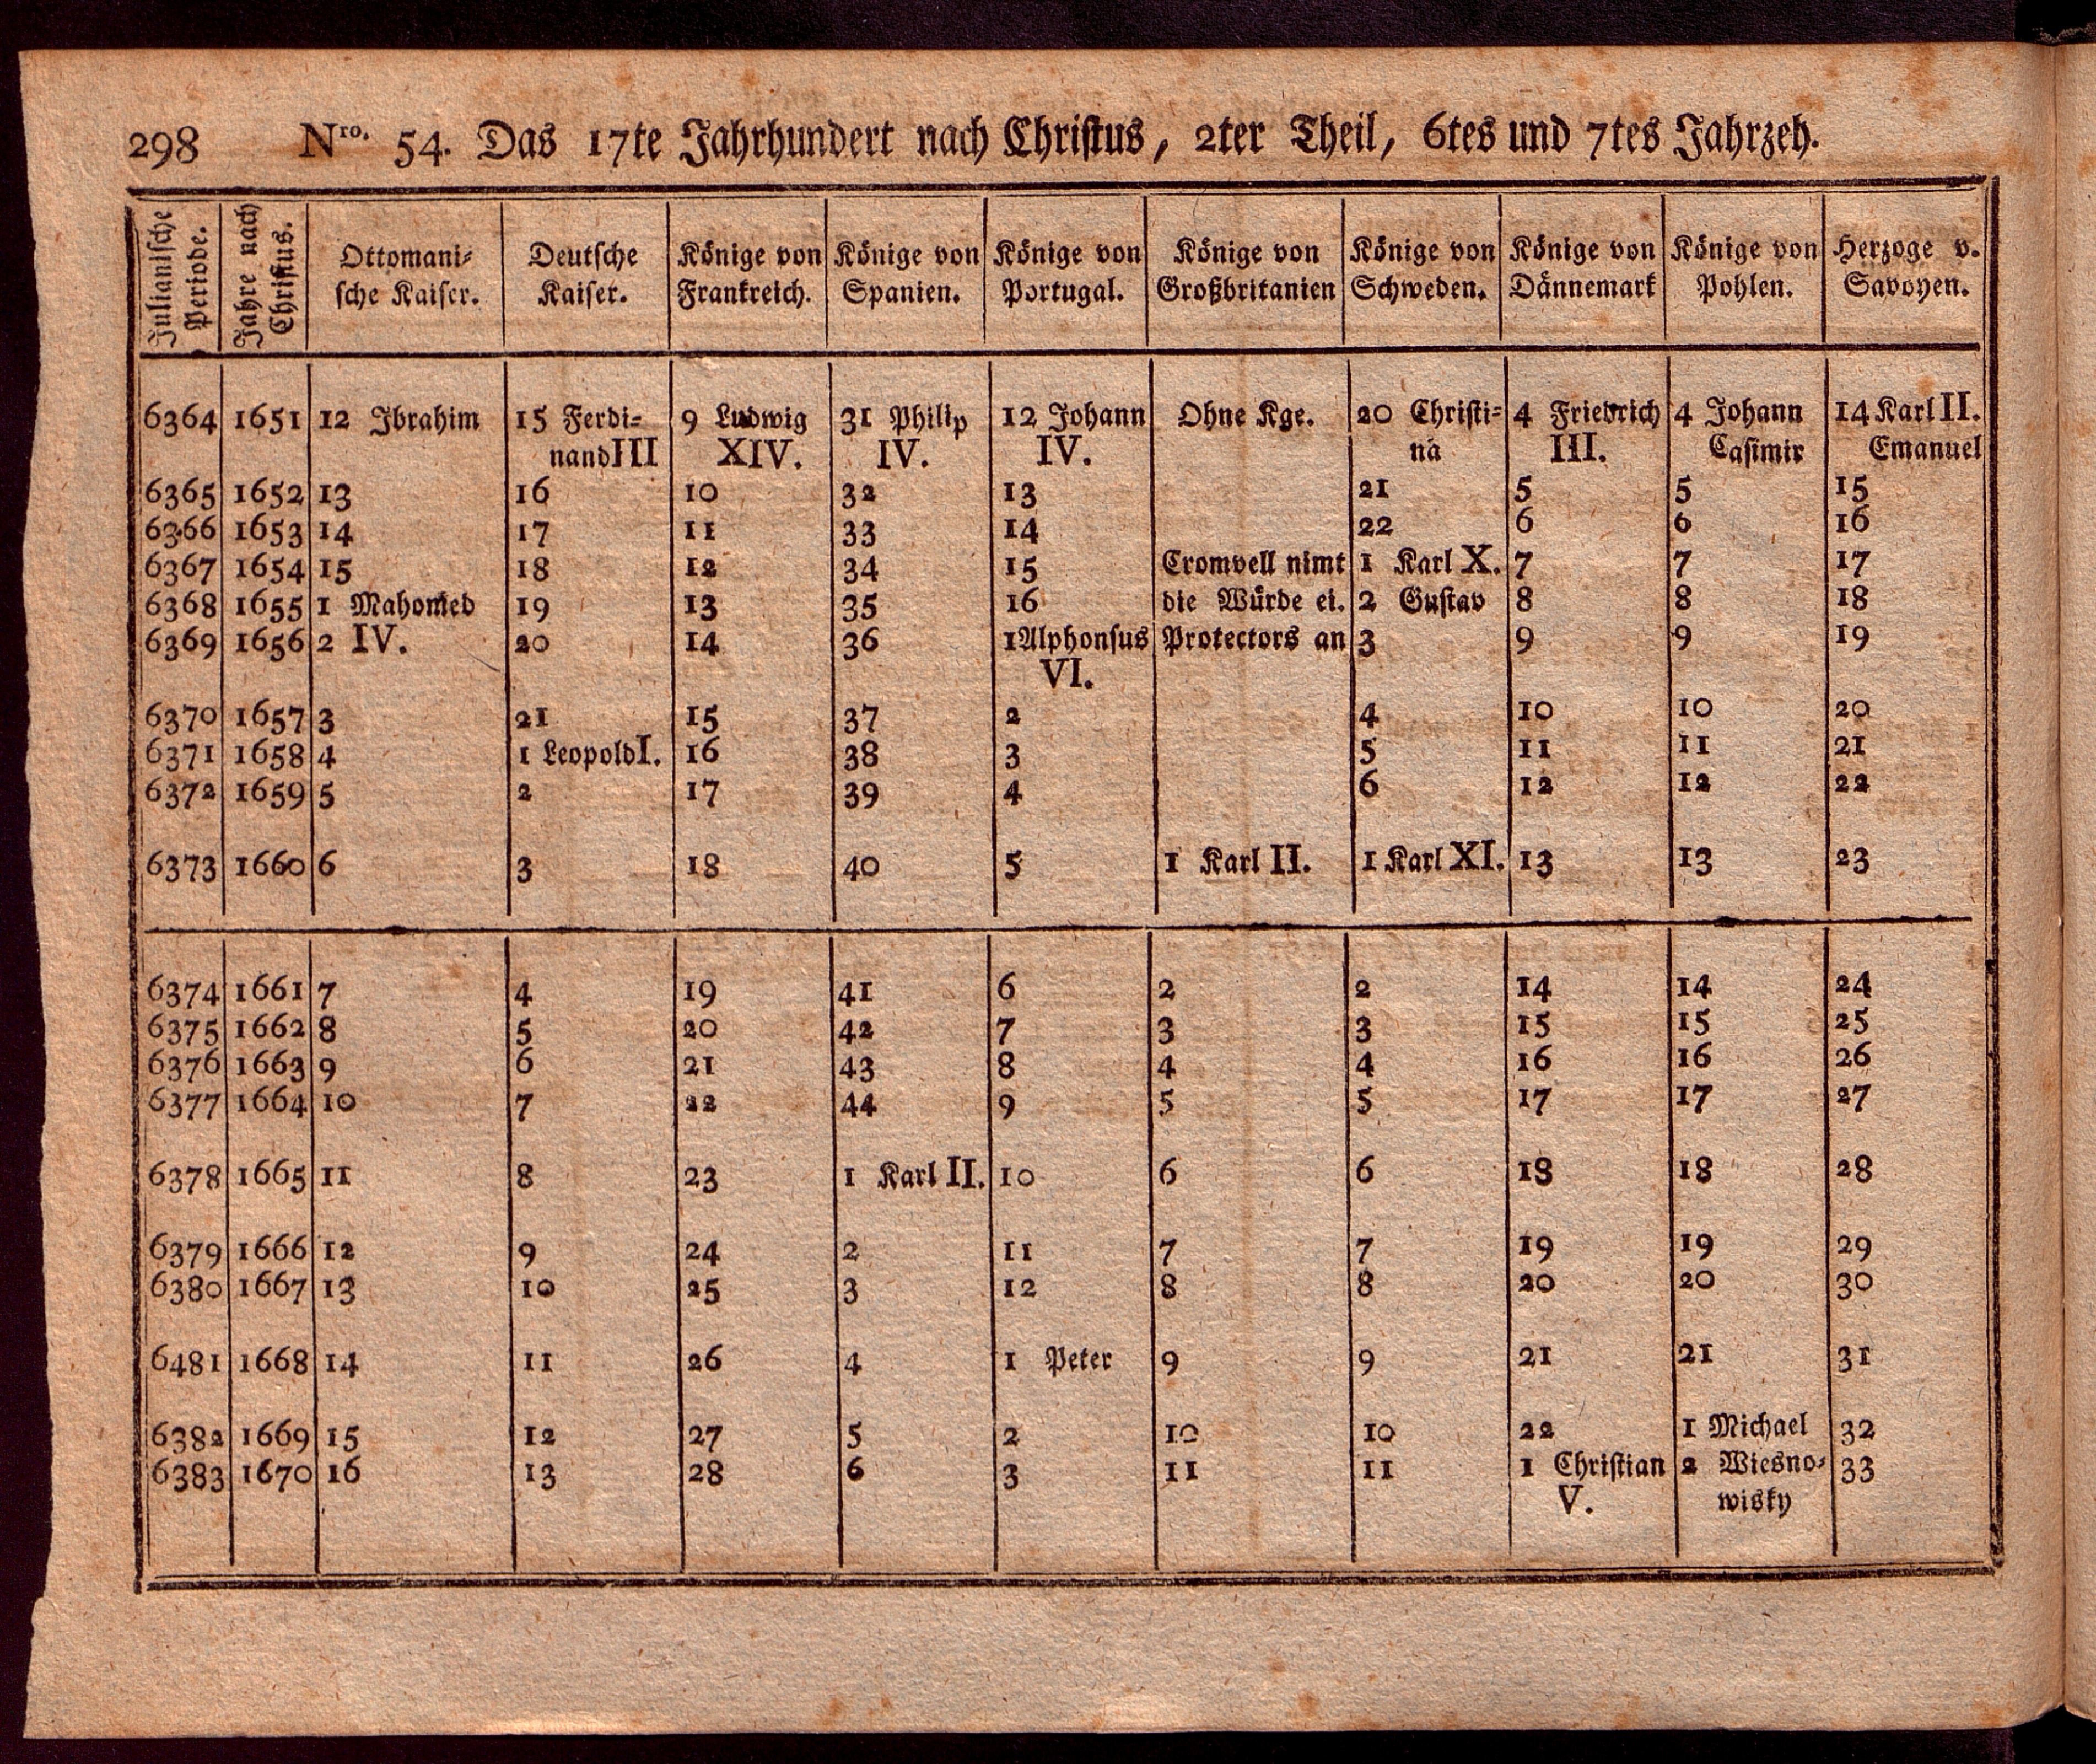 298 Nro. 54. Das 17te Jahrhundert nach Christus, 2ter Theil, 6tes und 7tes Jahrzeh.
Julianische Periode. Jahre nach Christus. Ottomani- Deutsche Könige von Könige von Könige von Könige von Könige von Könige von Könige von Herzoge v.
sche Kaiser. Kaiser. Frankreich. Spanien. Portugal. Großbritanien Schweden. Dännemark Pohlen. Savoyen.
6364 1651 12 Ibrahim 15 Ferdi- 9 Ludwig 31 Philip 12 Johann Ohne Kge. 20 Christi- 4 Friedrich 4 Johann 14 Karl II.
nand III XIV. IV. IV. na III. Casimir Emanuel
6365 1652 13 16 10 32 13 21 5 5 15
6366 1653 14 17 11 33 14 22 6 6 16
6367 1654 15 18 12 34 15 Cromvell nimt 1 Karl X. 7 7 17
6368 1655 1 Mahomed 19 13 35 16 die Würde ei. 2 Gustav 8 8 18
6369 1656 2 IV. 20 14 36 1 Alphonsus Protectors an 3 9 9 19
VI.
6370 1657 3 21 15 37 2 4 10 10 20
6371 1658 4 1 Leopold I. 16 38 3 5 11 11 21
6372 1659 5 2 17 39 4 6 12 12 22
6373 1660 6 3 18 40 5 1 Karl II. 1 Karl XI. 13 13 23
6374 1661 7 4 19 41 6 2 2 14 14 24
6375 1662 8 5 20 42 7 3 3 15 15 25
6376 1663 9 6 21 43 8 4 4 16 16 26
6377 1664 10 7 22 44 9 5 5 17 17 27
6378 1665 11 8 23 1 Karl II. 10 6 6 18 18 28
6379 1666 12 9 24 2 11 7 7 19 19 29
6380 1667 13 10 25 3 12 8 8 20 20 30
6481 1668 14 11 26 4 1 Peter 9 9 21 21 31
6382 1669 15 12 27 5 2 10 10 22 1 Michael 32
6383 1670 16 13 28 6 3 11 11 1 Christian 2 Wiesno- 33
V. wisky